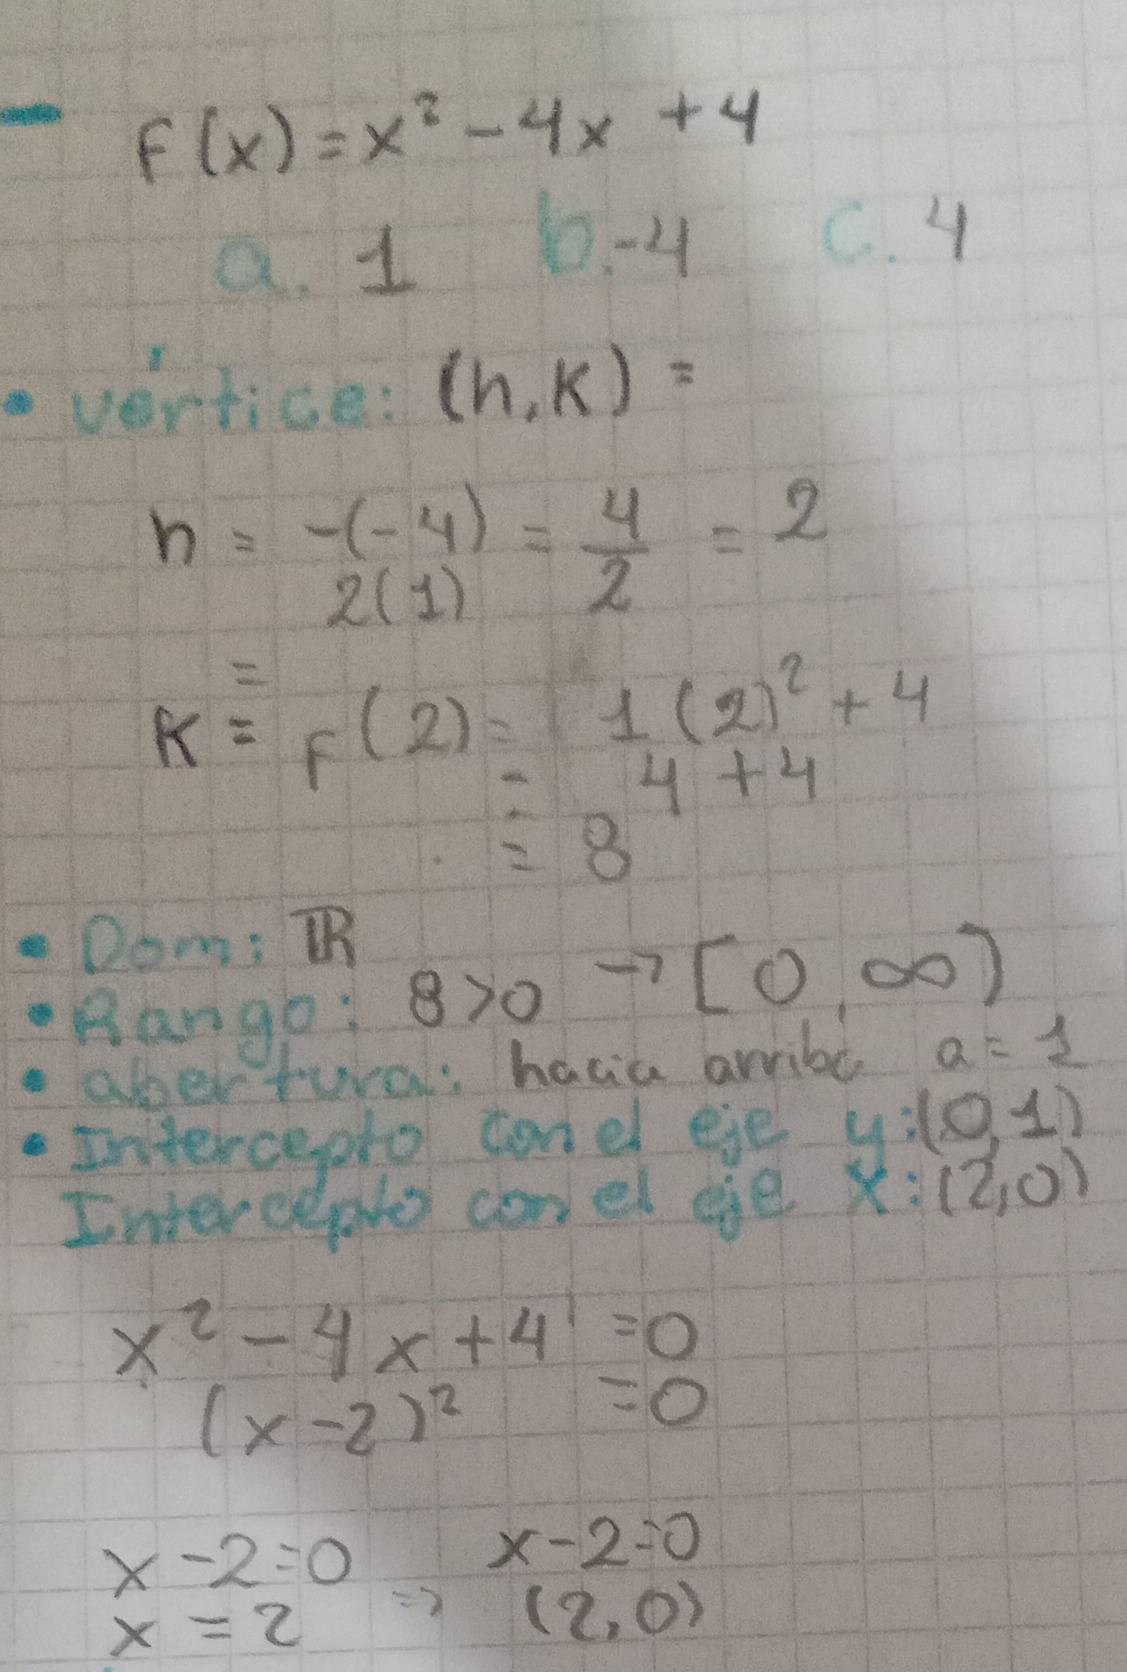 F(x) = x² - 4x + 4
a. 1 b. -4 c. 4
• vértice: (h, K) =
h = -(-4) / 2(1) = 4/2 = 2
=
K = F(2) = 1(2)² + 4
= 4 + 4
= 8
• Dom: ℝ
• Rango: 8>0 → [0, ∞)
• abertura: hacia arriba a = 1
• Intercepto con el eje y: (0,1)
Intercepto con el eje x: (2,0)
x² - 4x + 4 = 0
(x - 2)² = 0
x - 2 = 0 x - 2 = 0
x = 2 => (2,0)